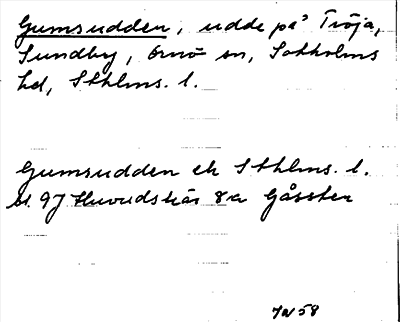 Gumsudden, udde på Träja,
Sundby, Ornö sn, Sotholms
hd, Sthlms. l.
Gumsudden ek Sthlms. l.
bl. 97 Huvudskär 8a Gåssten